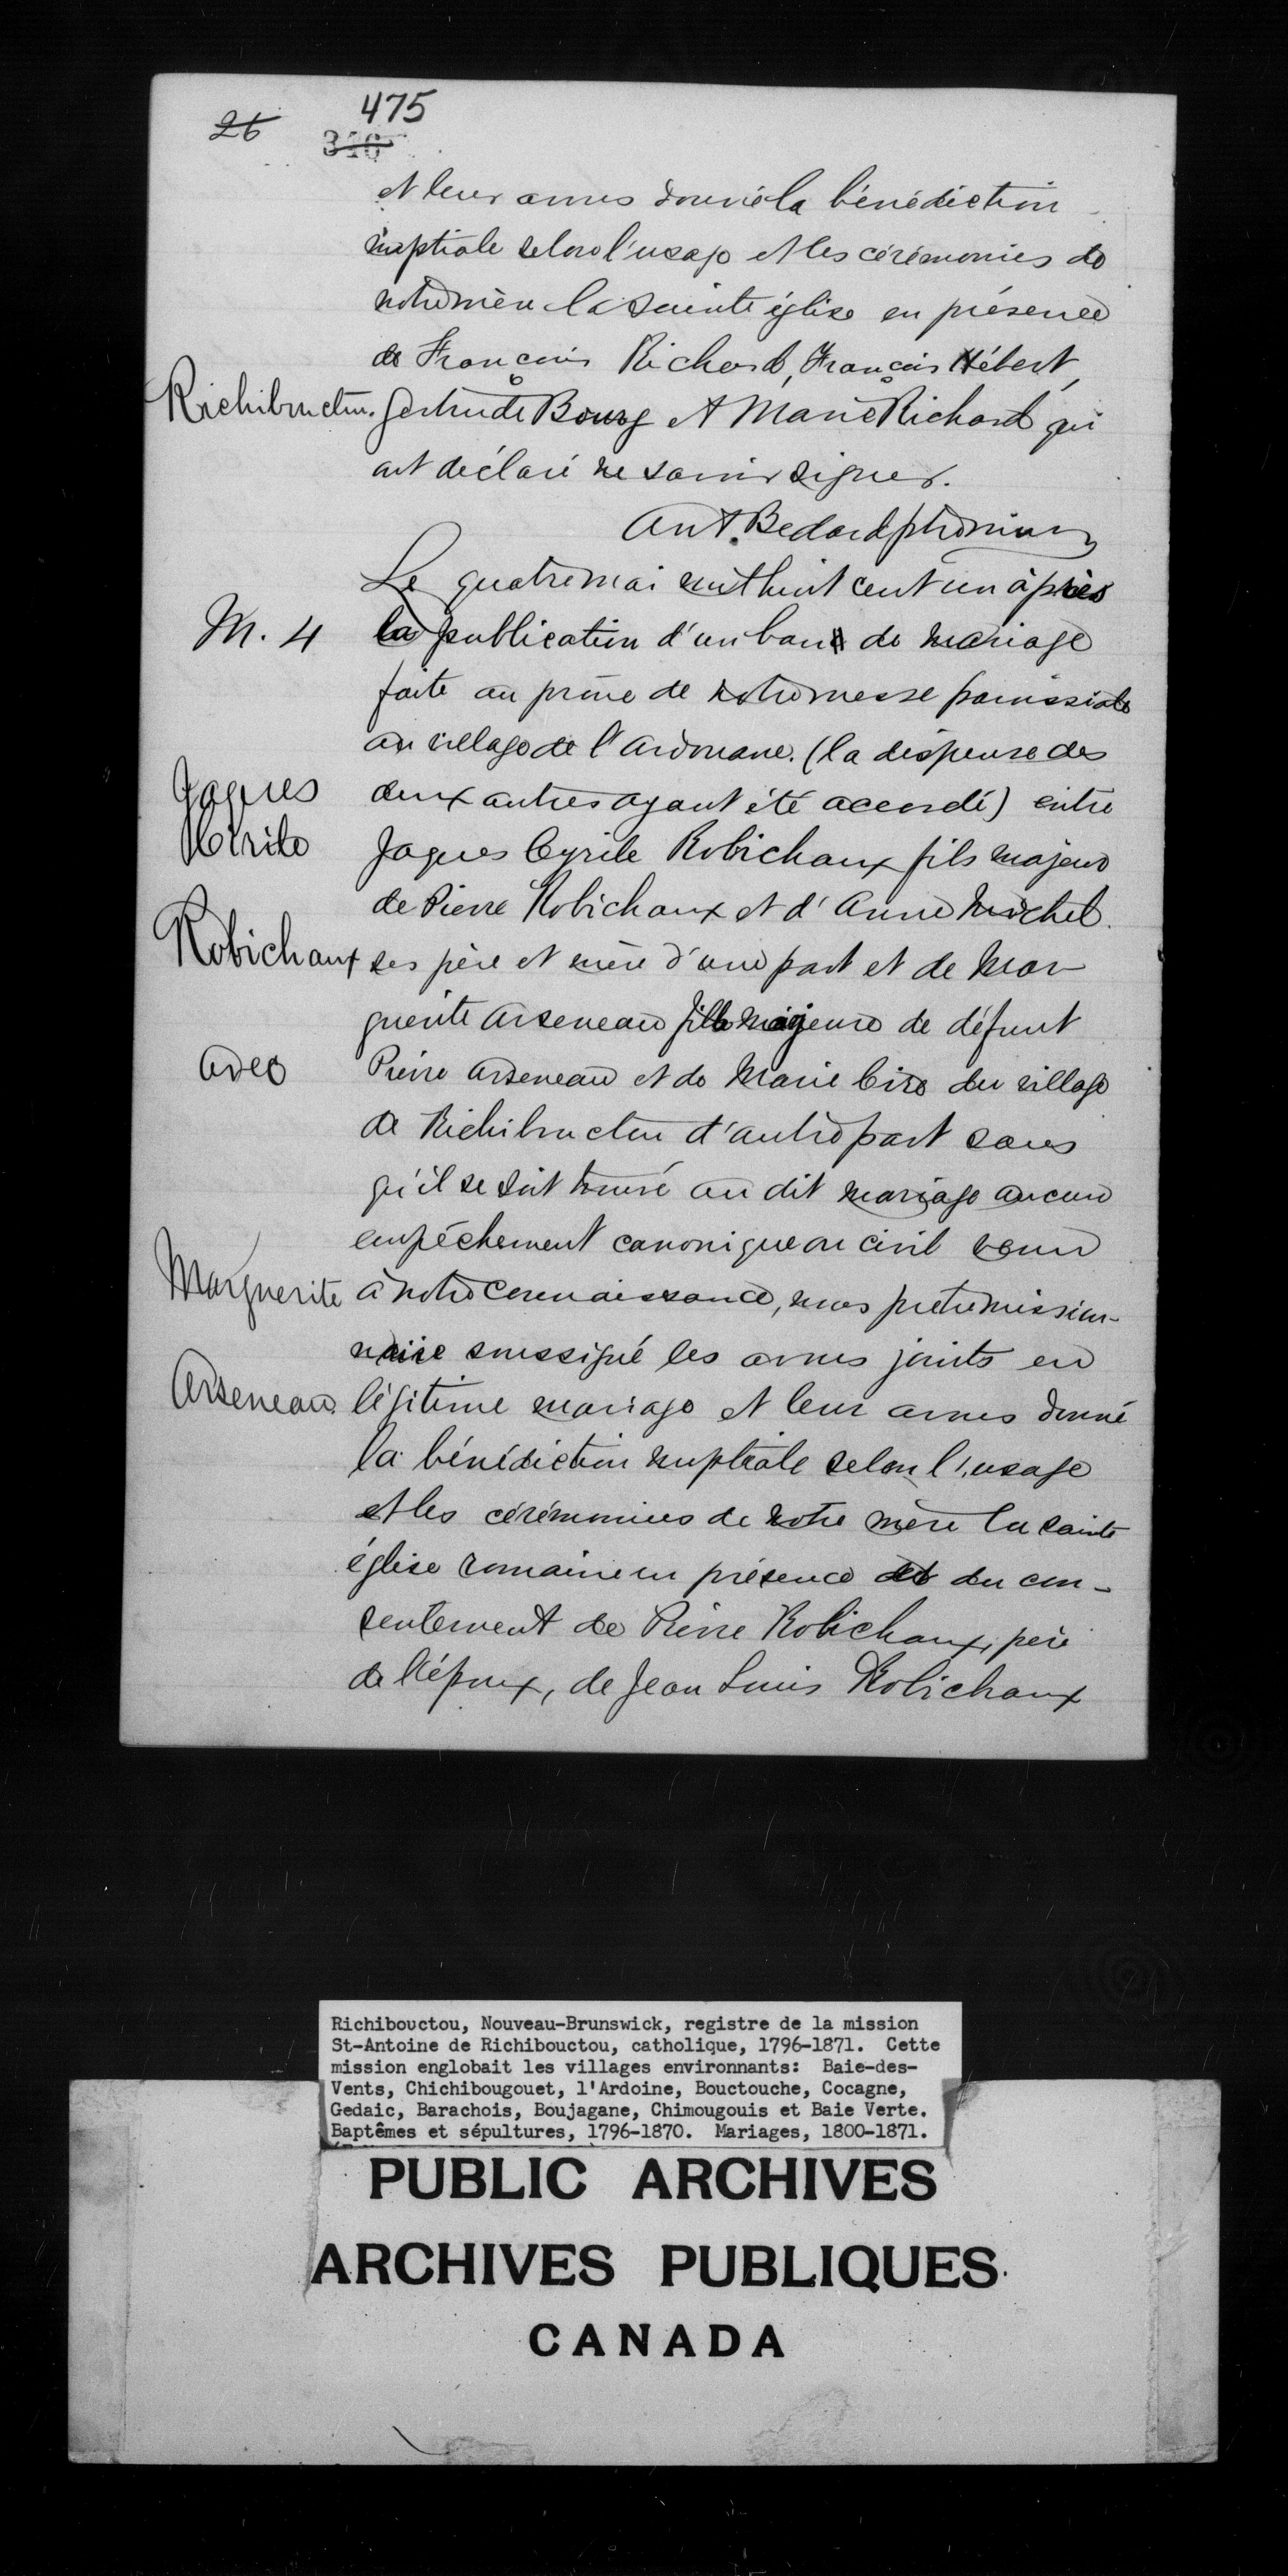 26
475
346
et leur avons donné la bénédiction
nuptiale selon l'usage et les cérémonies de
notre mère la Sainte église en présence
de François Richard, François Hébert,
Richibructou. Gertrude Bourg et Marie Richard qui
ont déclaré ne savoir signer.
Ant. Bedard ptre miss
Le quatre mai mil huit cent un après
M. 4 la publication d'un ban de mariage
faite au prône de notre messe paroissiale
au village de l'Ardouane. (la dispense des
Jaques deux autres ayant été accordé) entre
Cirile Jaques Cyrile Robichaux fils majeur
de Pierre Robichaux et d'Anne Michel.
Robichaux ses père et mère d'une part et de Mar-
guerite Arseneau fille majeure de défunt
avec Pierre Arseneau et de Marie Cire du village
de Richibructou d'autre part sans
qu'il se soit trouvé au dit mariage aucun
empêchement canonique ou civil venu
Marguerite à notre connaissance, nous pretre mission-
naire soussigné les avons joints en
Arseneau légitime mariage et leur avons donné
la bénédiction nuptiale selon l'usage
et les cérémonies de notre mère la sainte
église romaine en présence et du con-
sentement de Pierre Robichaux, père
de l'époux, de Jean Louis Robichaux
Richibouctou, Nouveau-Brunswick, registre de la mission
St-Antoine de Richibouctou, catholique, 1796-1871. Cette
mission englobait les villages environnants: Baie-des-
Vents, Chichibougouet, l'Ardoine, Bouctouche, Cocagne,
Gedaic, Barachois, Boujagane, Chimougouis et Baie Verte.
Baptêmes et sépultures, 1796-1870. Mariages, 1800-1871.
PUBLIC ARCHIVES
ARCHIVES PUBLIQUES
CANADA